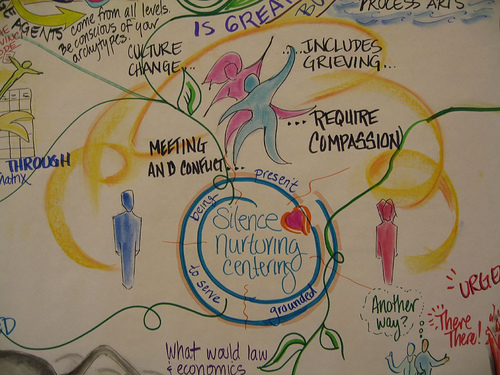 AGENTS come from all levels.
Be conscious of your
archtypes.
IS GREAT
PROCESS ARTS
CULTURE
CHANGE...
...INCLUDES
GRIEVING...
...REQUIRE
COMPASSION
MEETING
AND CONFLICT...
THROUGH
matrix
being
present
Silence
nurturing
centering
to serve
grounded
Another
way?
URGE
There
There!
What would law
& economics